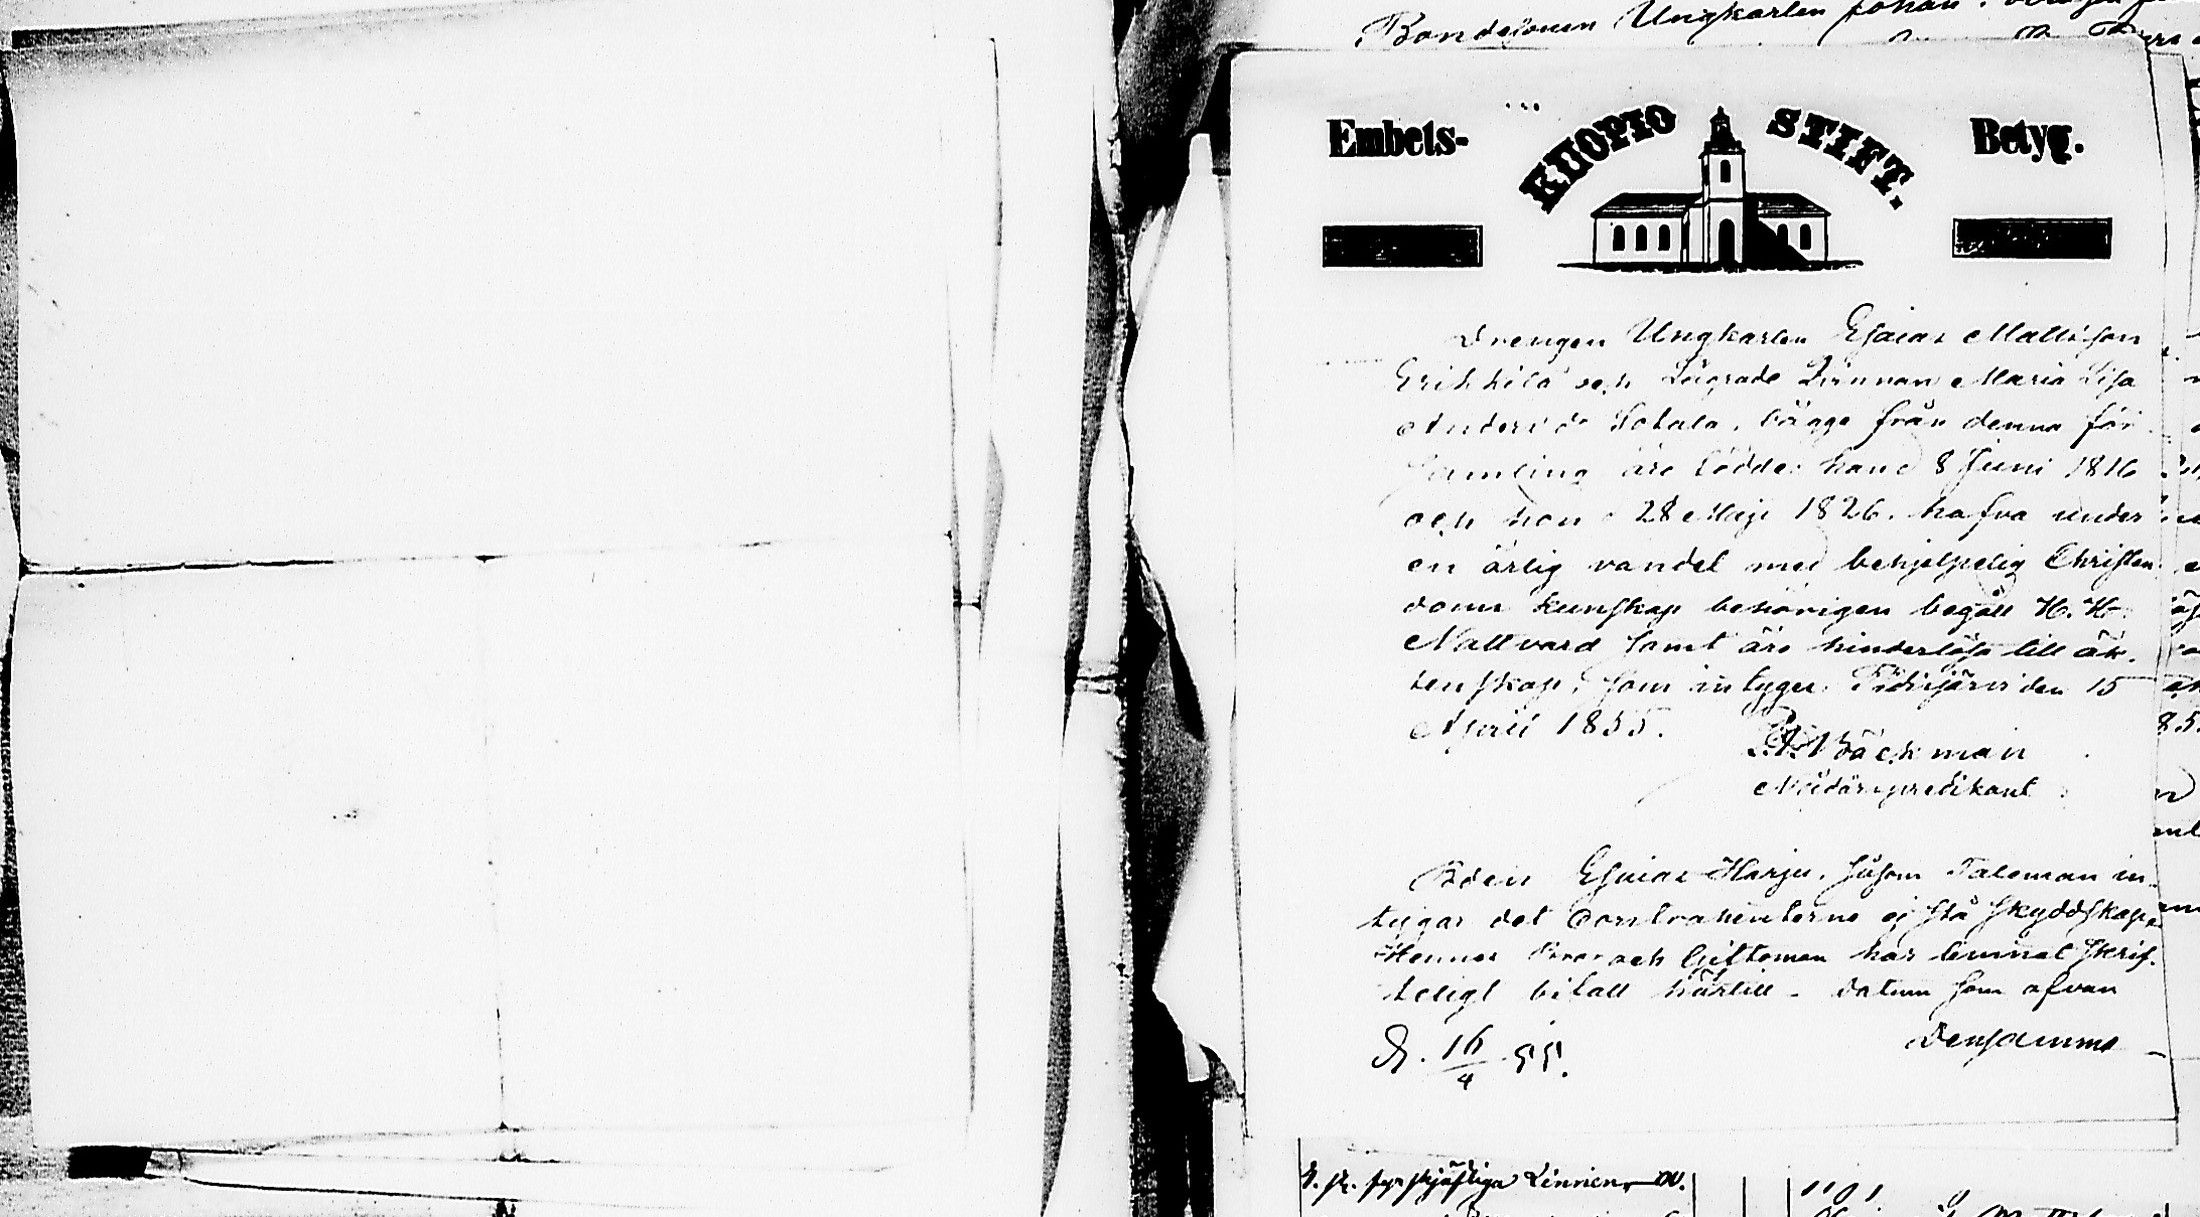 Bondesonen Ungkarlen Johan
Embets-
KUOPIO STIFT.
Betyg.
Drengen Ungkarlen Esaias Mattsson
Erikkilä och Lägrade Qvinnan Maria Lisa
Andersd. bägge från denna för
samling äro födde: han d 8 Juni 1816
och hon d 28 Maji 1826. hafva under
en ärlig vandel med behjelpelig Christen
doms kunskap behörigen begått H. H.
Nattvard samt äro hinderlösa till äk-
tenskap, som intygar. den 15
April 1855.
Bäckman
Nådårspredikant
Bden Esaias Harju, såsom Taleman in-
tygar det Contrahenterne ej stå i skyddskap,
Hennes Far och Giftoman har lemnat skrif-
teligt bifall härtill - datum som ofvan
Densamme
16/4 55.